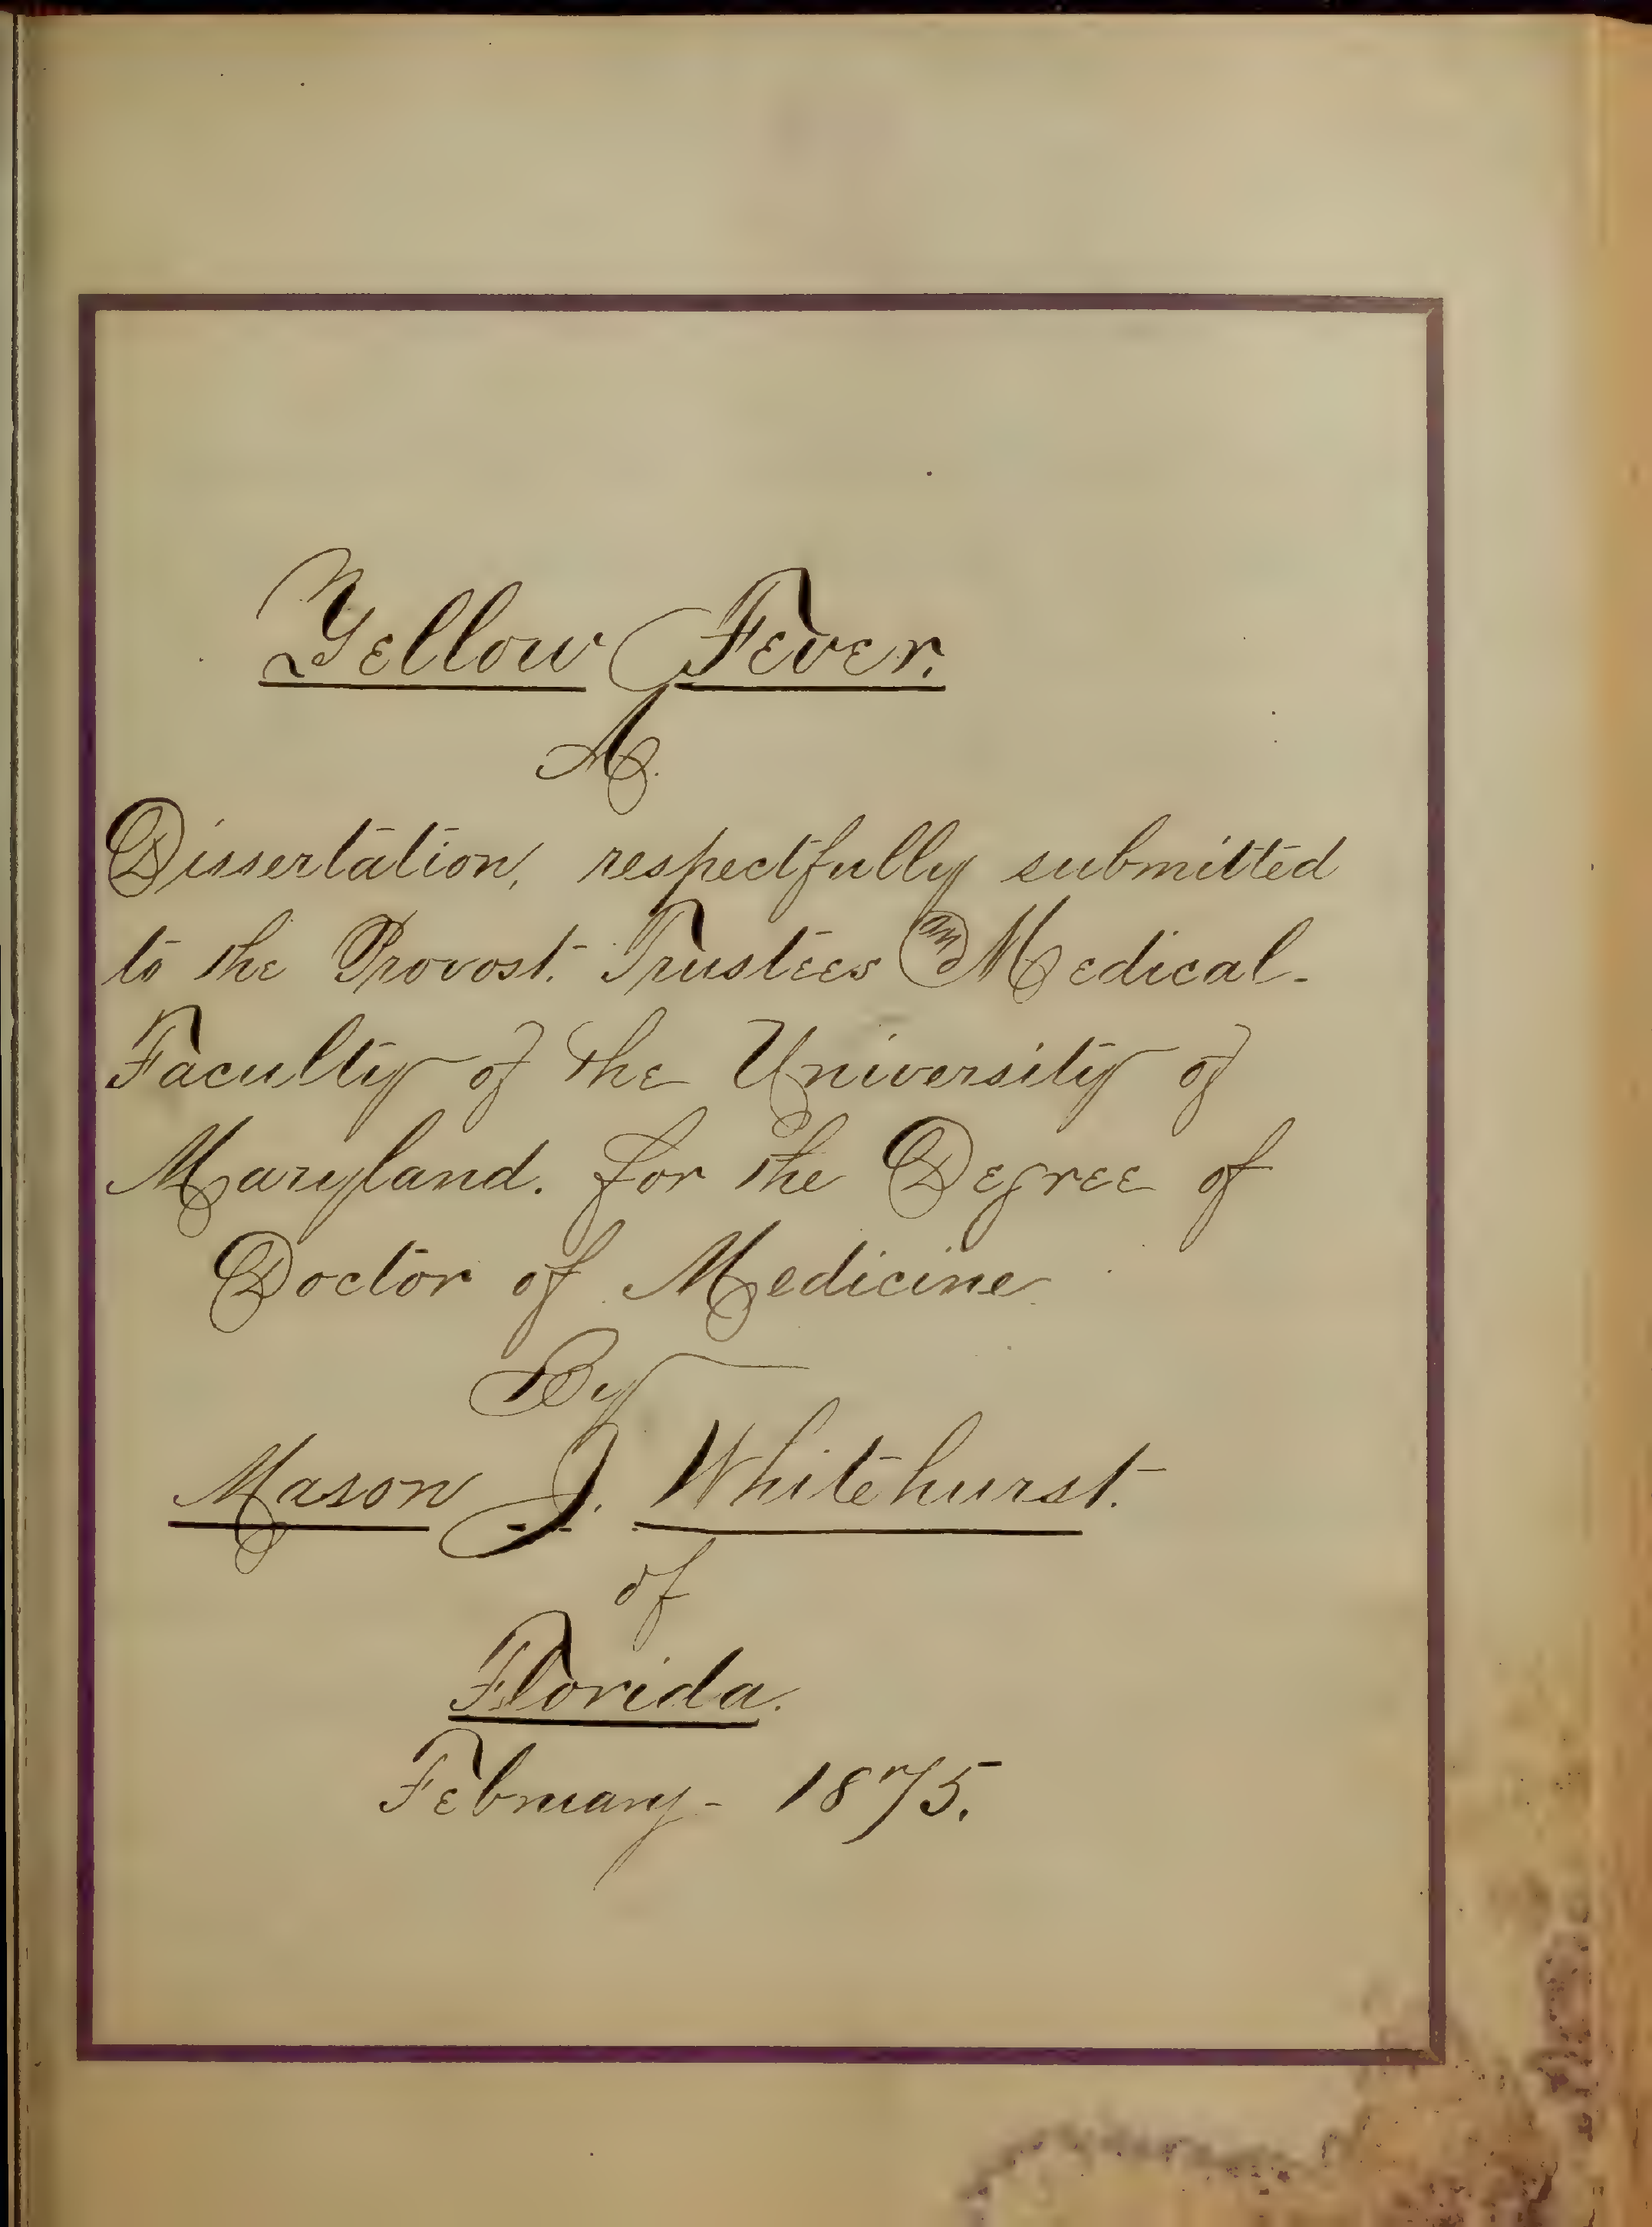 Yellow Fever.
A.
Dissertation, respectfully submitted
to the Provost. Trustees and Medical-
Faculty of the University of
Maryland. for the Degree of
Doctor of Medicine
By
Mason J. Whitehurst.
of
Florida.
February- 1875.